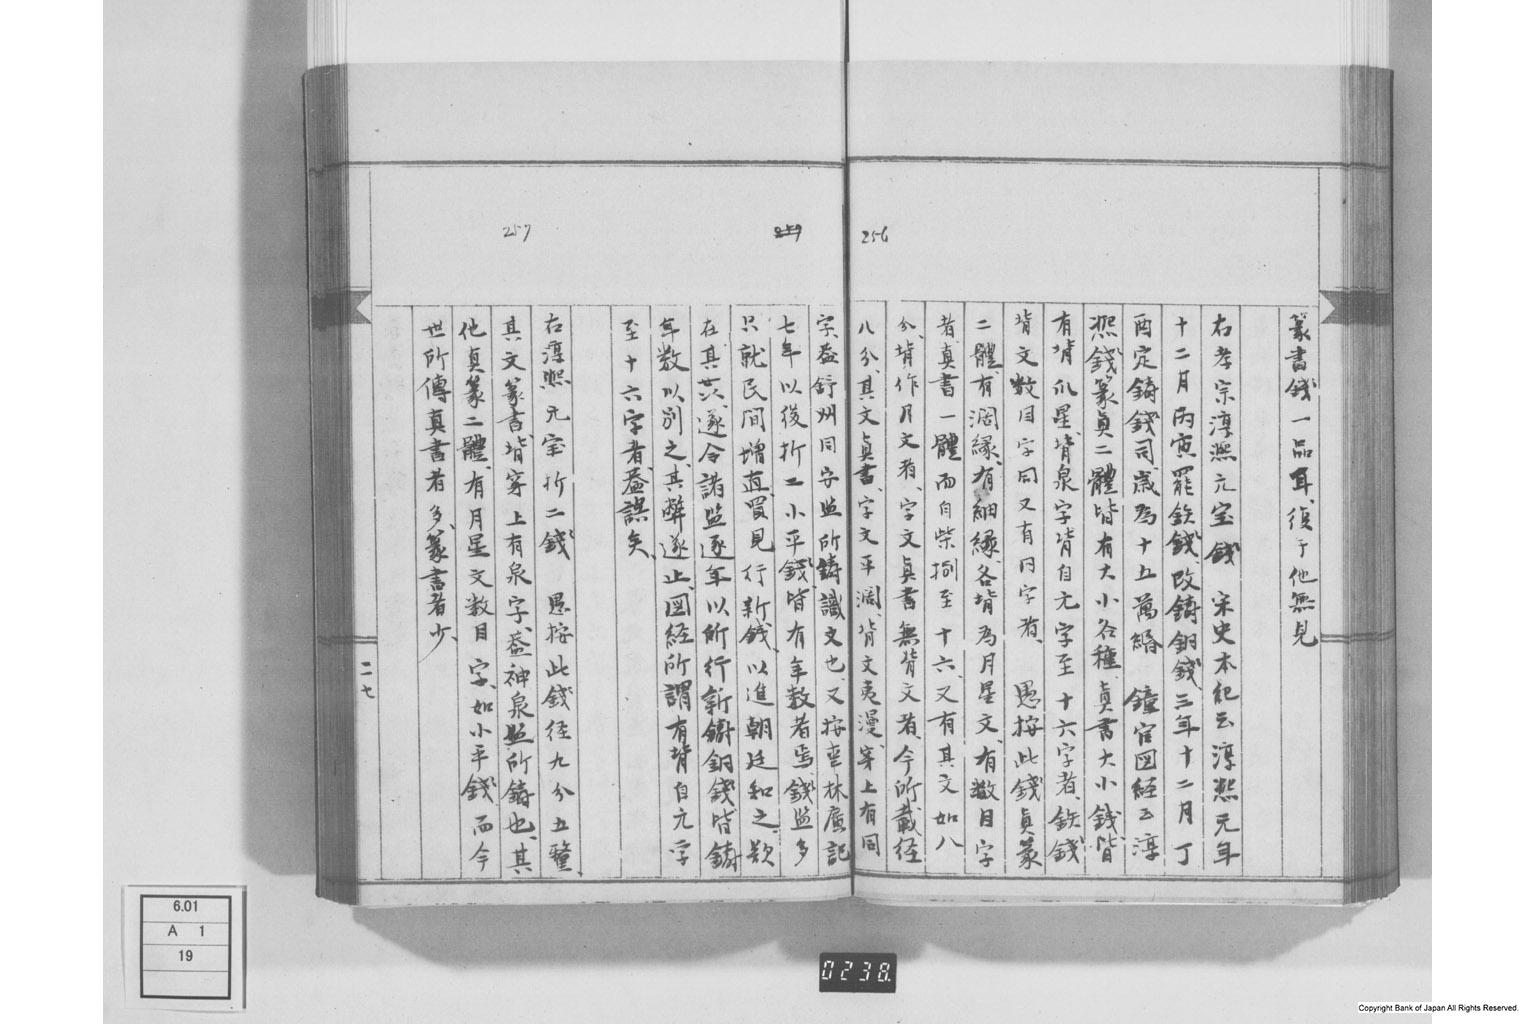 256
篆書錢一品耳、復于他無見
右孝宗淳熙元宝錢　宋史本紀云淳熙元年
十二月丙寅罷鉄錢、改鋳銅錢、三年十二月丁
酉定鋳錢司歳為十五萬緡　鐘官図経云淳
熙錢篆眞二體皆有大小各種、眞書大小錢、皆
有背爪星、背泉字背自元字至十六字者、鉄錢
背文數目字同又有同字者、　愚按此錢眞篆
二體、有濶縁、有細縁、各背為月星文、有數目字
者、眞書一體而自柒捌至十六、又有其文如八
分、背作月文者、字文眞書無背文者、今所載径
八分、其文眞書、字文平濶、背文夷漫、穿上有同
259
257
字、益舒州同安监所鋳識文也、又按壷林廣記
七年以後折二小平錢、皆有年數者焉、錢监多
只就民間増直買見行新錢、以進朝廷知之、欺
在其、遂令諸监逐年以所行新鋳銅錢皆鋳
年数以別之、其弊遂止、図経所謂有背自元字
至十六字者、益誤矣、
右淳熙元宝折二錢　愚按此錢径九分五釐、
其文篆書背穿上有泉字、益神泉监所鋳也、其
他眞篆二體、有月星文数目字、如小平錢、而今
世所傳真書者多、篆書者少、
二七
6.01
A 1
19
0238
Copyright Bank of Japan All Rights Reserved.